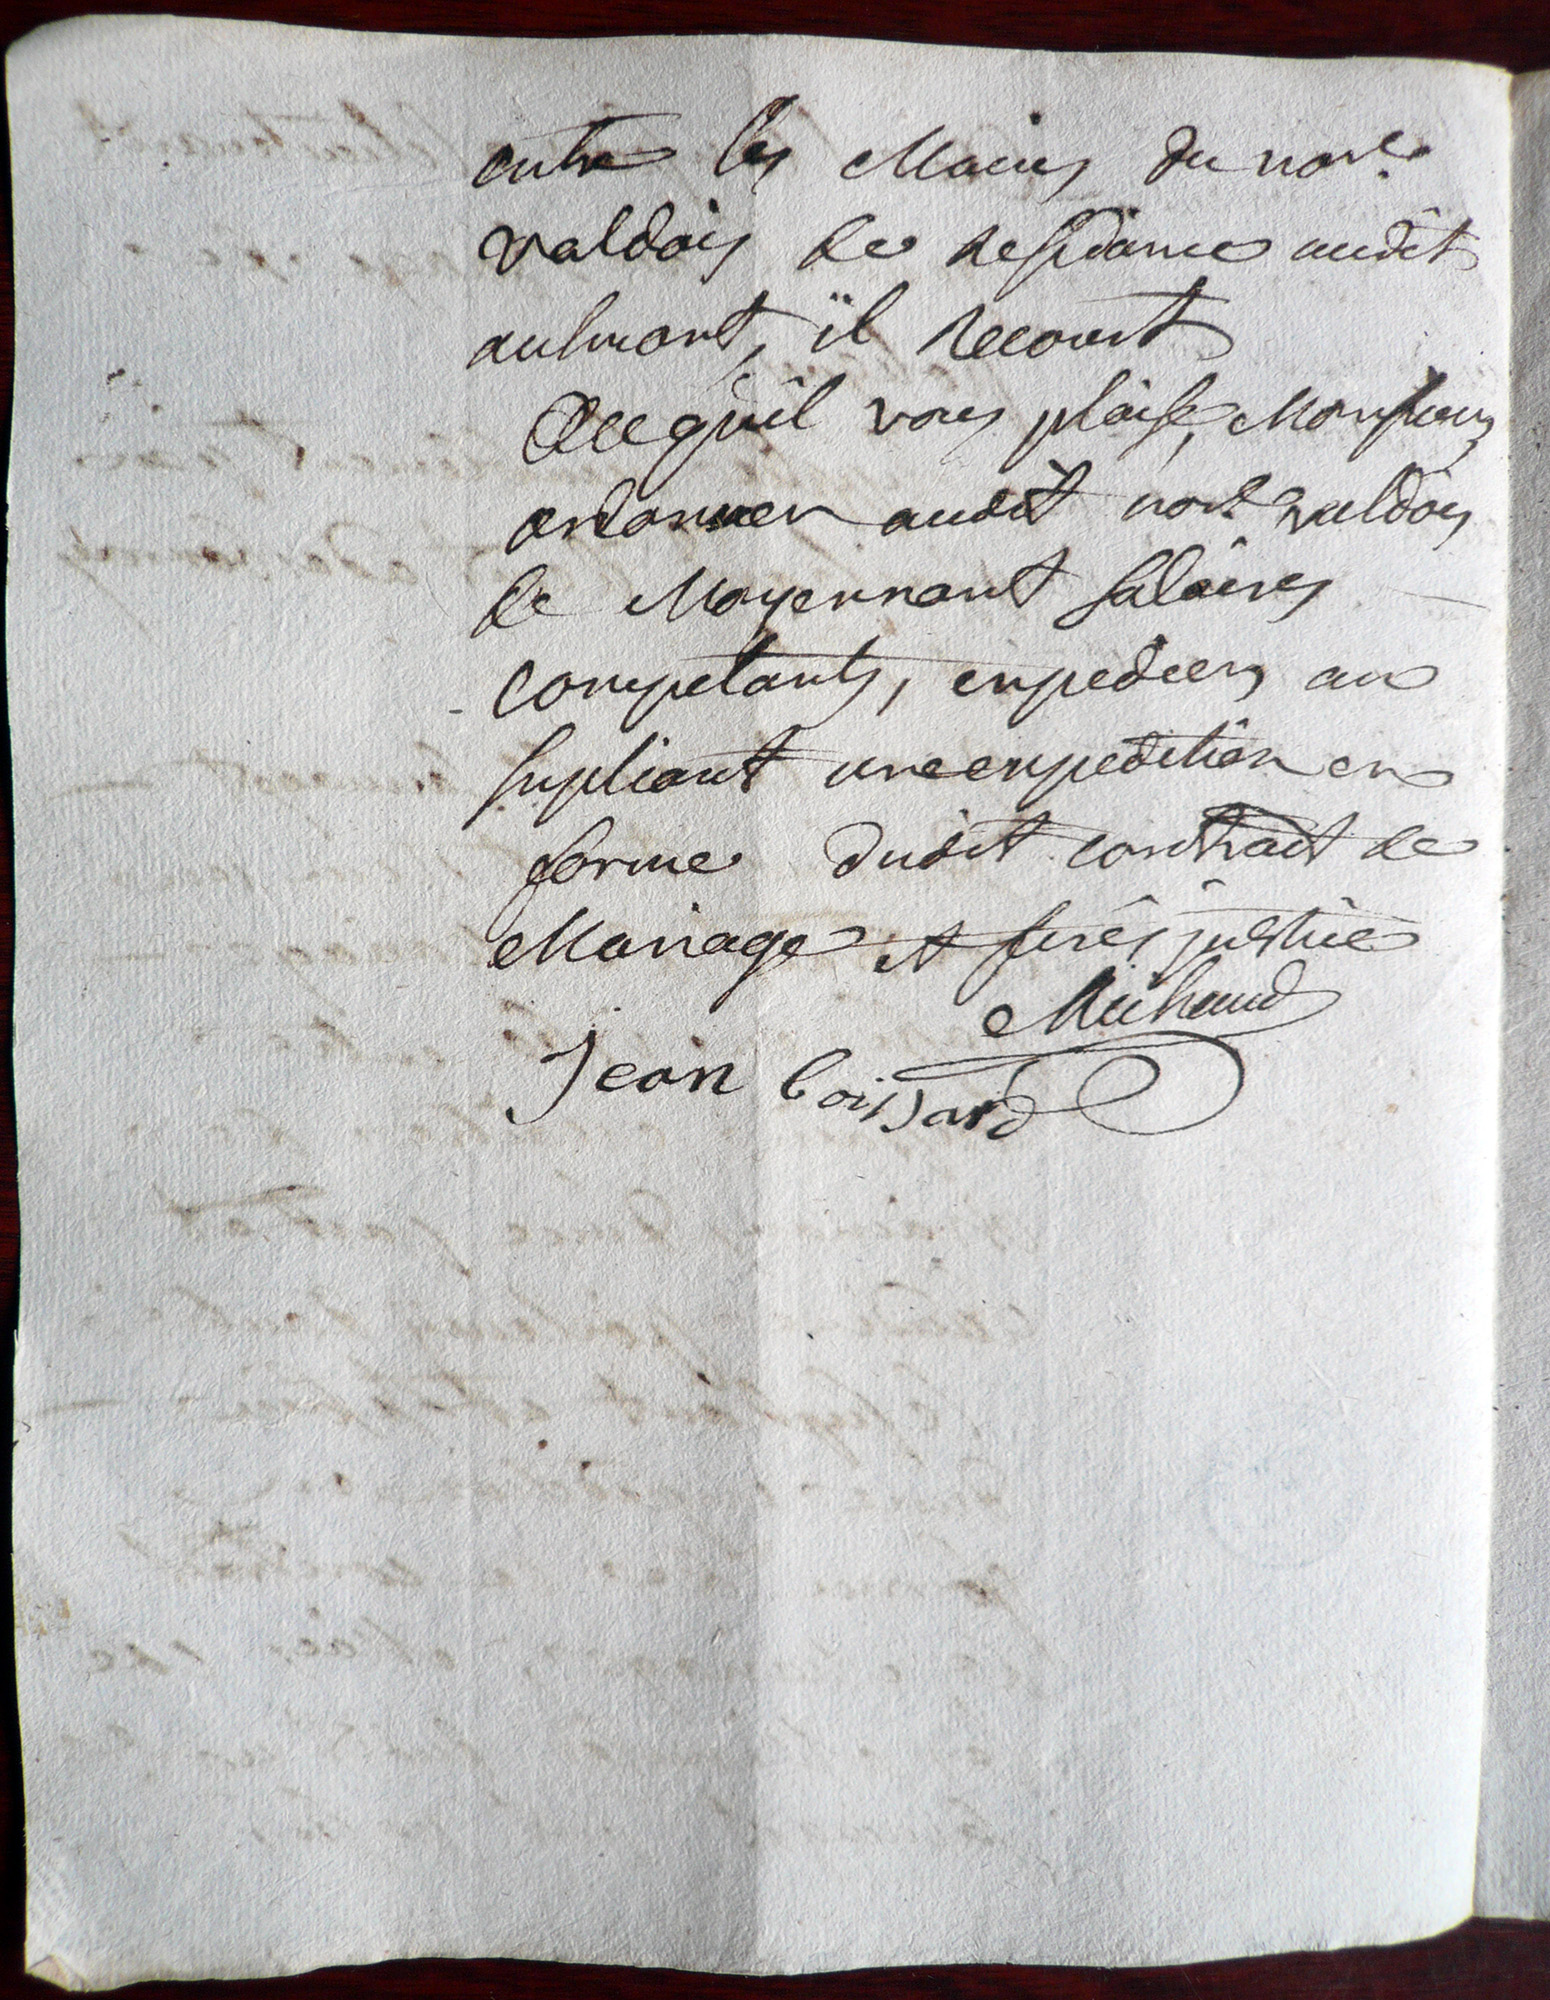 entre les Mains du not.e
valdois de residance audit
aulmont, il recourt
A ce quil vous plaise, Monsieur,
ordonner audit not.e valdois
de Moyennant salaires
competants, expedier au
supliant une expedition en
forme dudit contract de
Mariage et ferés justice
Michaud
Jean boissard